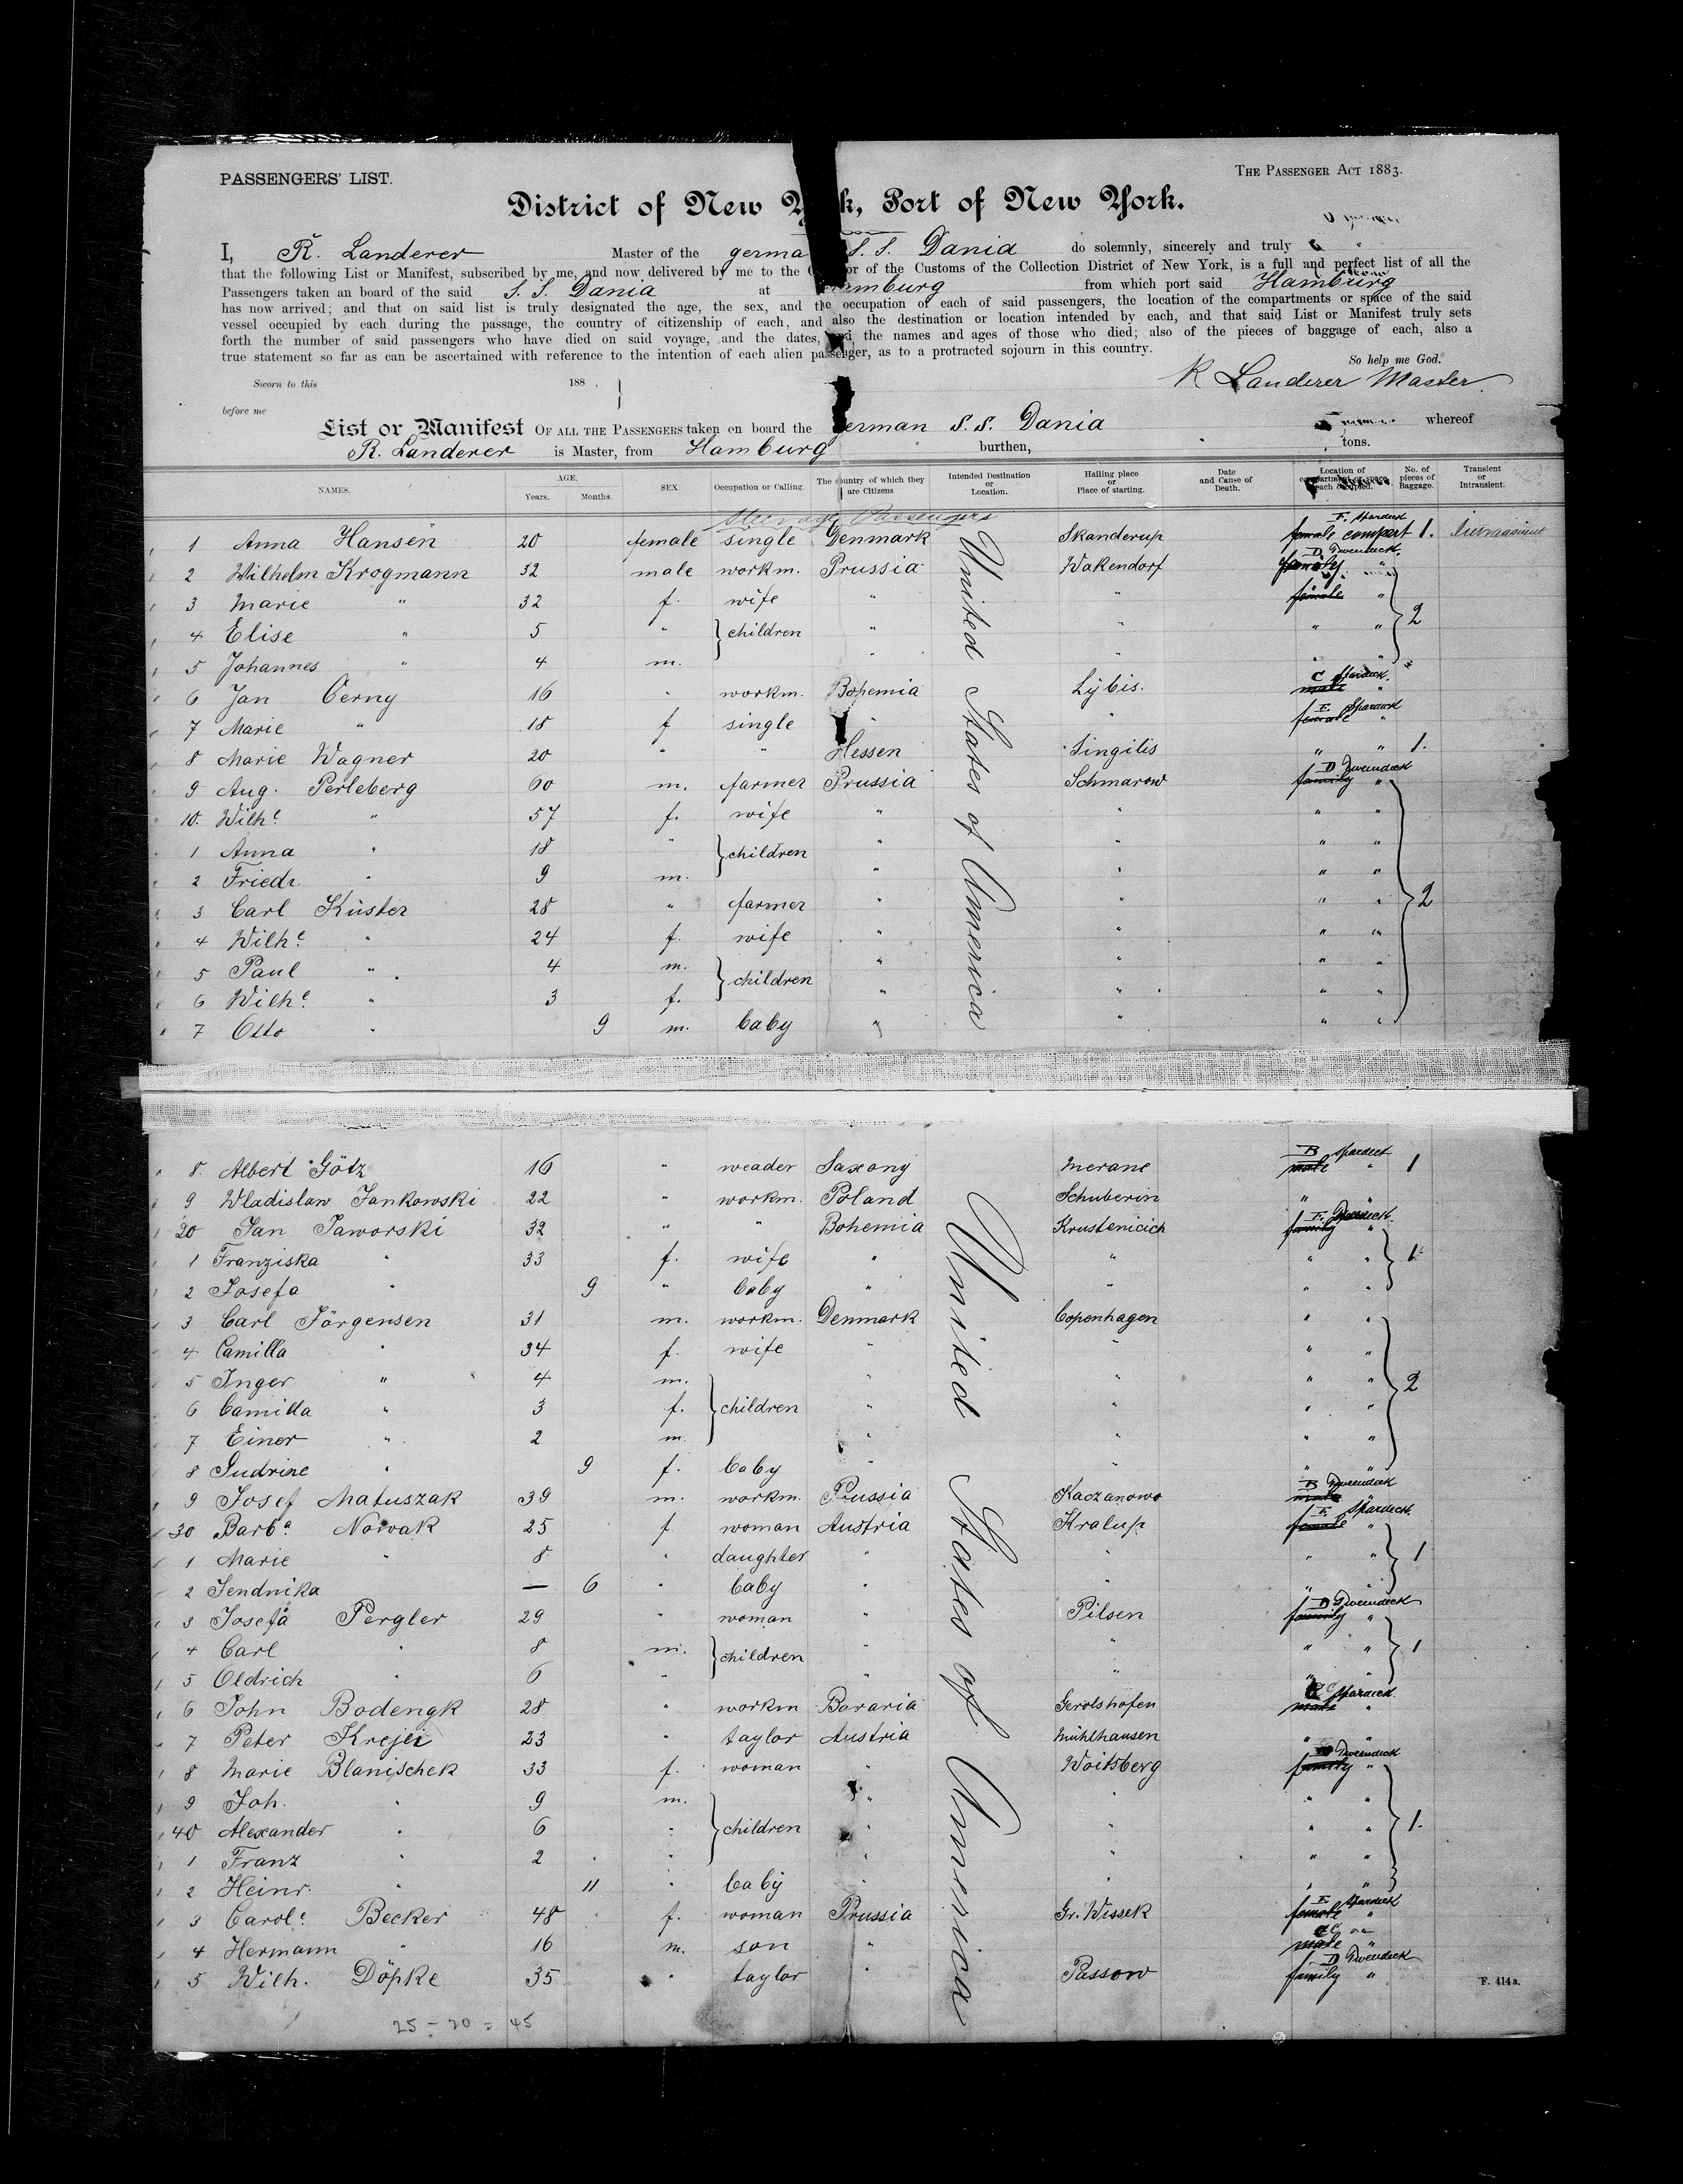 PASSENGERS' LIST.
THE PASSENGER ACT 1883.
District of New Y k, Port of New York.
I, R. Landerer Master of the germa S. S. Dania do solemnly, sincerely and truly
that the following List or Manifest, subscribed by me, and now delivered by me to the C or of the Customs of the Collection District of New York, is a full and perfect list of all the
Passengers taken an board of the said S. S. Dania at Hamburg from which port said Hamburg
has now arrived; and that on said list is truly designated the age, the sex, and the occupation of each of said passengers, the location of the compartments or space of the said
vessel occupied by each during the passage, the country of citizenship of each, and also the destination or location intended by each, and that said List or Manifest truly sets
forth the number of said passengers who have died on said voyage, and the dates, and the names and ages of those who died; also of the pieces of baggage of each, also a
true statement so far as can be ascertained with reference to the intention of each alien passenger, as to a protracted sojourn in this country.
So help me God.
Sworn to this 188 .
R Landerer Master.
before me
List or Manifest OF ALL THE PASSENGERS taken on board the german S. S. Dania whereof
R. Landerer is Master, from Hamburg burthen, tons.
NAMES. AGE. Years. Months. SEX. Occupation or Calling. The country of which they are Citizens Intended Destination or Location. Hailing place or Place of starting. Date and Cause of Death. Location of compartment or space each occupied. No. of pieces of Baggage. Transient or Intransient.
Steerage Passengers
United States of America
1 Anna Hansen 20 female single Denmark Skanderup F. Spardeck female compart 1.
2 Wilhelm Krogmann 32 male workm. Prussia Wakendorf D Tweendeck family "
3 Marie " 32 f. wife " " female " 2
4 Elise " 5 " children " " " "
5 Johannes " 4 m. " " " "
6 Jan Cerny 16 " workm. Bohemia Lybis. C Spardeck. male "
7 Marie " 18 f single " " F. Spardeck female "
8 Marie Wagner 20 " " Hessen Singilis " " 1.
9 Aug. Perleberg 60 m. farmer Prussia Schmarow D Tweendeck family "
10. Wilhe " 57 f. wife " " " "
1 Anna " 18 " children " " " "
2 Friedr. " 9 m. " " " "
3 Carl Küster 28 " farmer " " " " 2
4 Wilhe " 24 f. wife " " " "
5 Paul " 4 m. children " " " "
6 Wilhe " 3 f. " " " "
7 Otto " 9 m. baby " " " "
United States of America
8. Albert Götz 16 " weader Saxony Merane B Spardeck male " 1
9 Wladislaw Jankowski 22 " workm. Poland Schuberin " "
20 Jan Jaworski 32 " " Bohemia Krustenicich F. Tweendeck. family "
1 Franziska " 33 f. wife " " " " 1
2 Josefa " 9 " baby " " " "
3 Carl Jörgensen 31 m. workm. Denmark Copenhagen " "
4 Camilla " 34 f. wife " " " "
5 Inger " 4 m. " " " " 2
6 Camilla " 3 f. children " " " "
7 Einer " 2 m. " " " "
8 Gudrine " 9 f. baby " " " "
9 Josef Matuszak 39 m. workm. Prussia Kaczanowo B Tweendeck male "
30 Barba Nowak 25 f woman Austria Kralup F. Spardeck. female "
1 Marie " 8 " daughter " " " " 1
2 Jendnika — 6 " baby " " " "
3 Josefa Pergler 29 " woman " Pilsen D Tweendeck family "
4 Carl " 8 m. children " " " " 1
5 Oldrich " 6 " " " " "
6 John Bodengk 28 " workm Bavaria Gerolshofen C Spardeck male "
7 Peter Krejci 23 " taylor Austria Mühlhausen " "
8 Marie Blanischek 33 f. woman " Woitsberg Tweendeck family "
9 Joh. " 9 m. " " " "
40 Alexander " 6 " children " " " " 1.
1 Franz " 2 " " " " "
2 Heinr. " 11 " baby " " " "
3 Carole Becker 48 f. woman Prussia Gr. Wissek F. Spardeck female "
4 Hermann " 16 m. son " " male "
5 Wilh. Döpke 35 " taylor " Passow D Tweendeck family "
F. 414a.
25 - 20 = 45